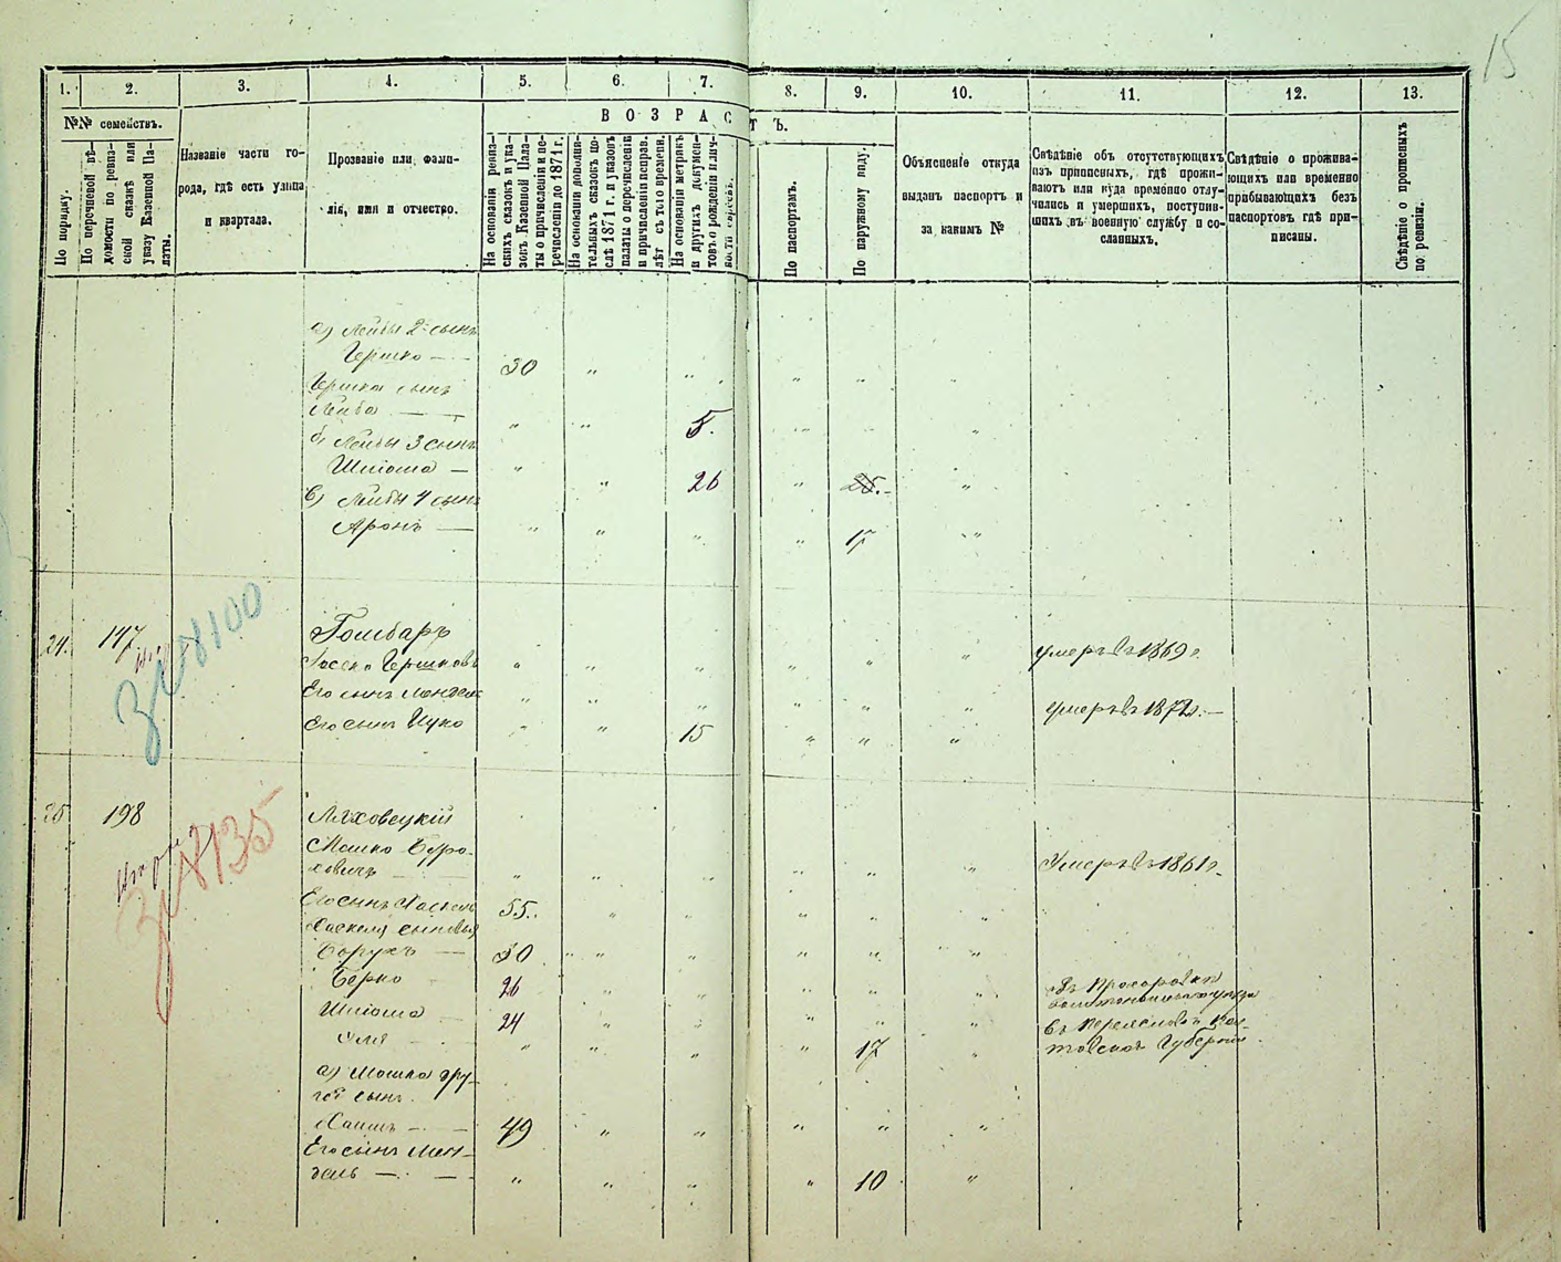 15
1. 2. 3. 4. 5. 6. 7. 8. 9. 10. 11. 12. 13.
№№ семействъ.
По порядку.
По перечневой вѣ-
домости по ревиз-
ской сказкѣ или
указу Казенной Па-
латы.
Названіе части го-
рода, гдѣ есть улица
и квартала.
Прозваніе или фами-
лія, имя и отчество.
ВОЗРАСТЪ.
На основаніи ревиз-
скихъ сказокъ и ука-
зовъ Казенной Пала-
ты о причисленіи и пе-
речисленіи до 1871 г.
На основаніи дополни-
тельныхъ сказокъ по-
слѣ 1871 г. и указовъ
палаты о перечисленіи
и причисленіи исправ.
лѣт съ того времени.
На основаніи метрикъ
и другихъ докумен-
товъ о рожденіи и лич-
ности евреевъ.
По паспортамъ.
По наружному виду.
Объясненіе откуда
выданъ паспортъ и
за какимъ №
Свѣдѣніе объ отсутствующихъ
изъ приписныхъ, гдѣ прожи-
ваютъ или куда временно отлу-
чились и умершихъ, поступив-
шихъ въ военную службу и со-
сланныхъ.
Свѣдѣніе о прожива-
ющихъ или временно
прибывающихъ безъ
паспортовъ гдѣ при-
писаны.
Свѣдѣніе о прописныхъ
по ревизіи.
а) Лейбы 2й сынъ
Гершко — 30 " " " " "
Гершка сынъ
Лейба — " " 5. " "
б) Лейбы 3 сынъ
Шліома — " " 26 " 25. "
в) Лейбы 4 сынъ
Аронъ — " " " " 17 "
24. 147 Гомбаръ
Іосько Гершковъ " " " " " " умеръ въ 1869 г.
Его сынъ Мендель " " " " " " умеръ въ 1872 г.
Его сынъ Ицко " " 15 " " "
8100
25 198 Ляховецкій
Мошко Боро-
ховичъ — " " " " " " Умеръ въ 1861 г.
Его сынъ Хаскель 55. " " " " "
Хаскеля сыновья
Борухъ — 30 " " " " "
Берко 26 " " " " "
Шліома 24 " " " " "
" " " " 17 " Губерніи
8135
а) Мошка дру-
гой сынъ
Хаимъ — 49 " " " " "
Его сынъ Мен-
дель — " " " " 10 "